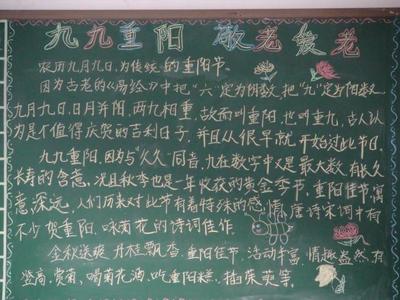 九九重阳 敬老爱老
农历九月九日,为传统的重阳节。
因为古老的《易经》中把“六”定为阴数,把“九”定为阳数,
九月九日,日月并阳,两九相重,故而叫重阳,也叫重九,古人认
为是个值得庆贺的吉利日子,并且从很早就开始过此节日。
九九重阳,因为与“久久”同音,九在数字中又是最大数,有长久
长寿的含意,况且秋季也是一年收获的黄金季节,重阳佳节,寓
意深远,人们历来对此节有着特殊的感情,唐诗宋词中有
不少贺重阳,咏菊花的诗词佳作。
金秋送爽,丹桂飘香,重阳佳节,活动丰富,情趣盎然,有
登高、赏菊、喝菊花酒、吃重阳糕、插茱萸等。